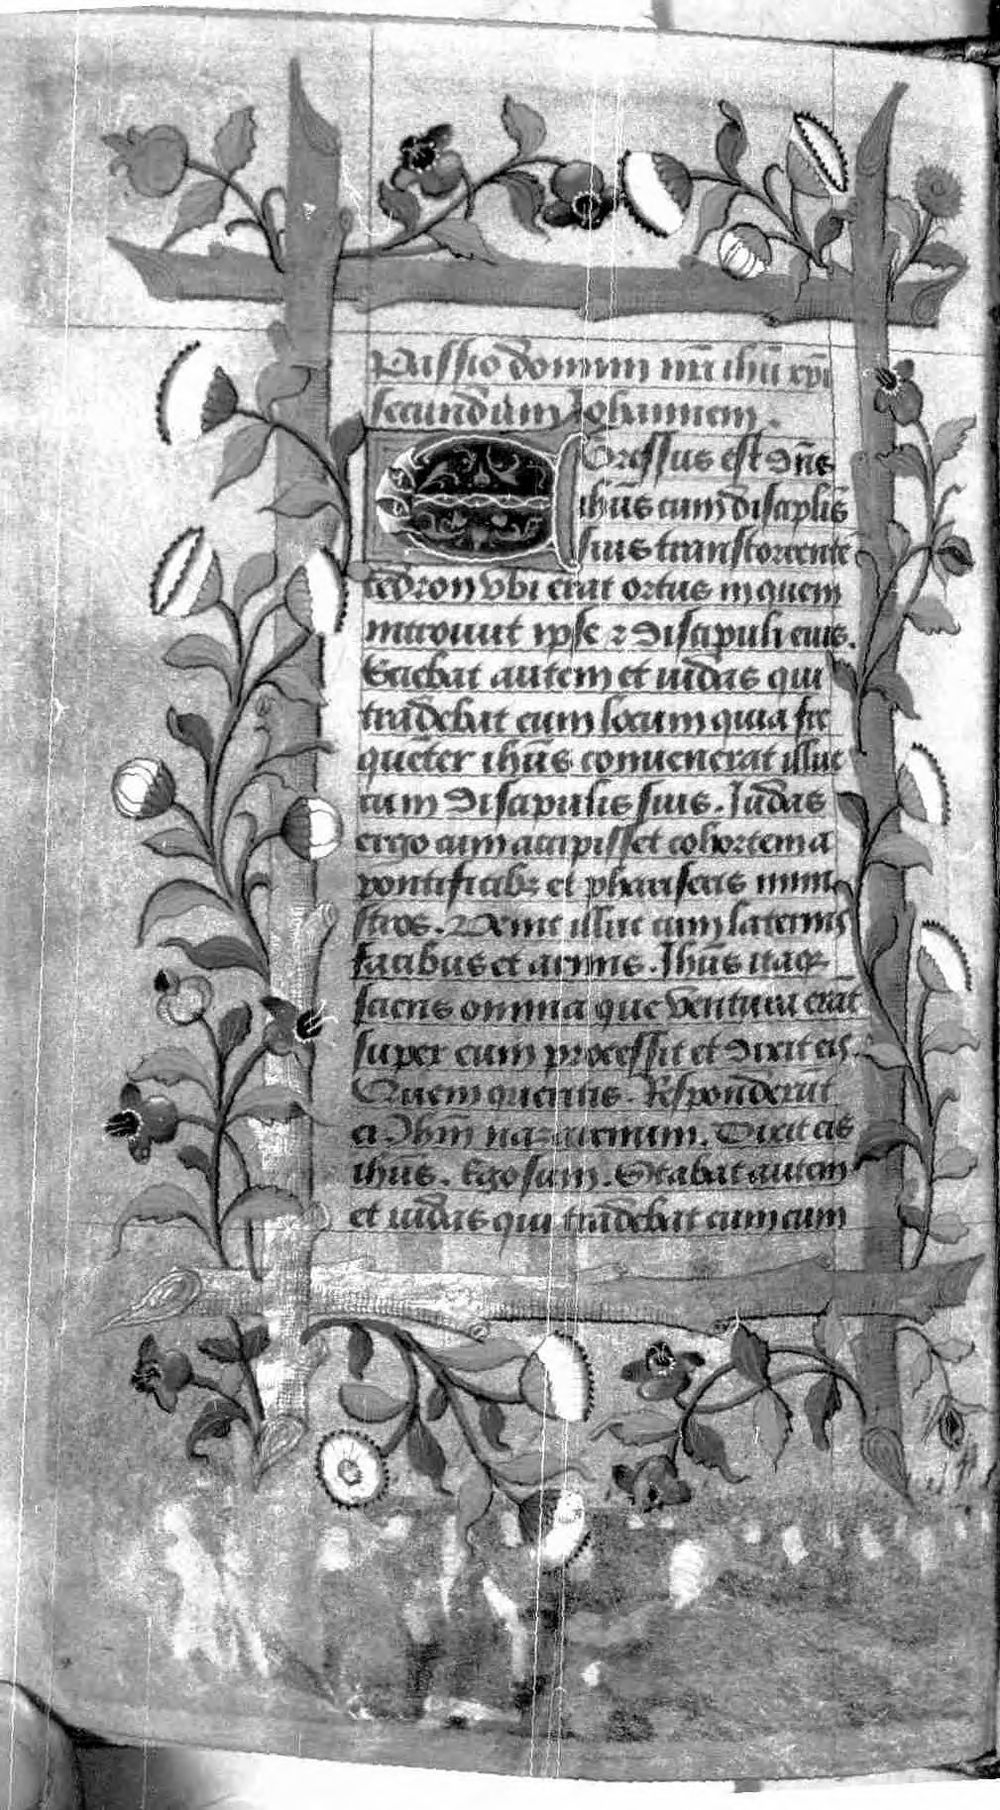 Passio domini nr̄i ihū xp̄i
secundum Johannem.
Egressus est dn̄s
ihūs cum discip̄lis
suis trans torrentē
cedron vbi erat ortus in quem
introiuit ip̄se ⁊ discipuli eius.
Sciebat autem et iudas qui
tradebat eum locum quia fre
quēter ihūs conuenerat illuc
cum discipulis suis. Judas
ergo cum accepisset cohortem a
pontificibꝫ et phariseis mini
stros. Venit illuc cum laternis
facibus et armis. Jhūs itaqꝫ
sciens omnia que ventura erāt
super eum processit et dixit eis.
Quem queritis. Rſponderūt
ei. Jhm̄ nazarenum. Dixit eis
ihūs. Ego sum. Stabat autem
et iudas qui tradebat eum cum